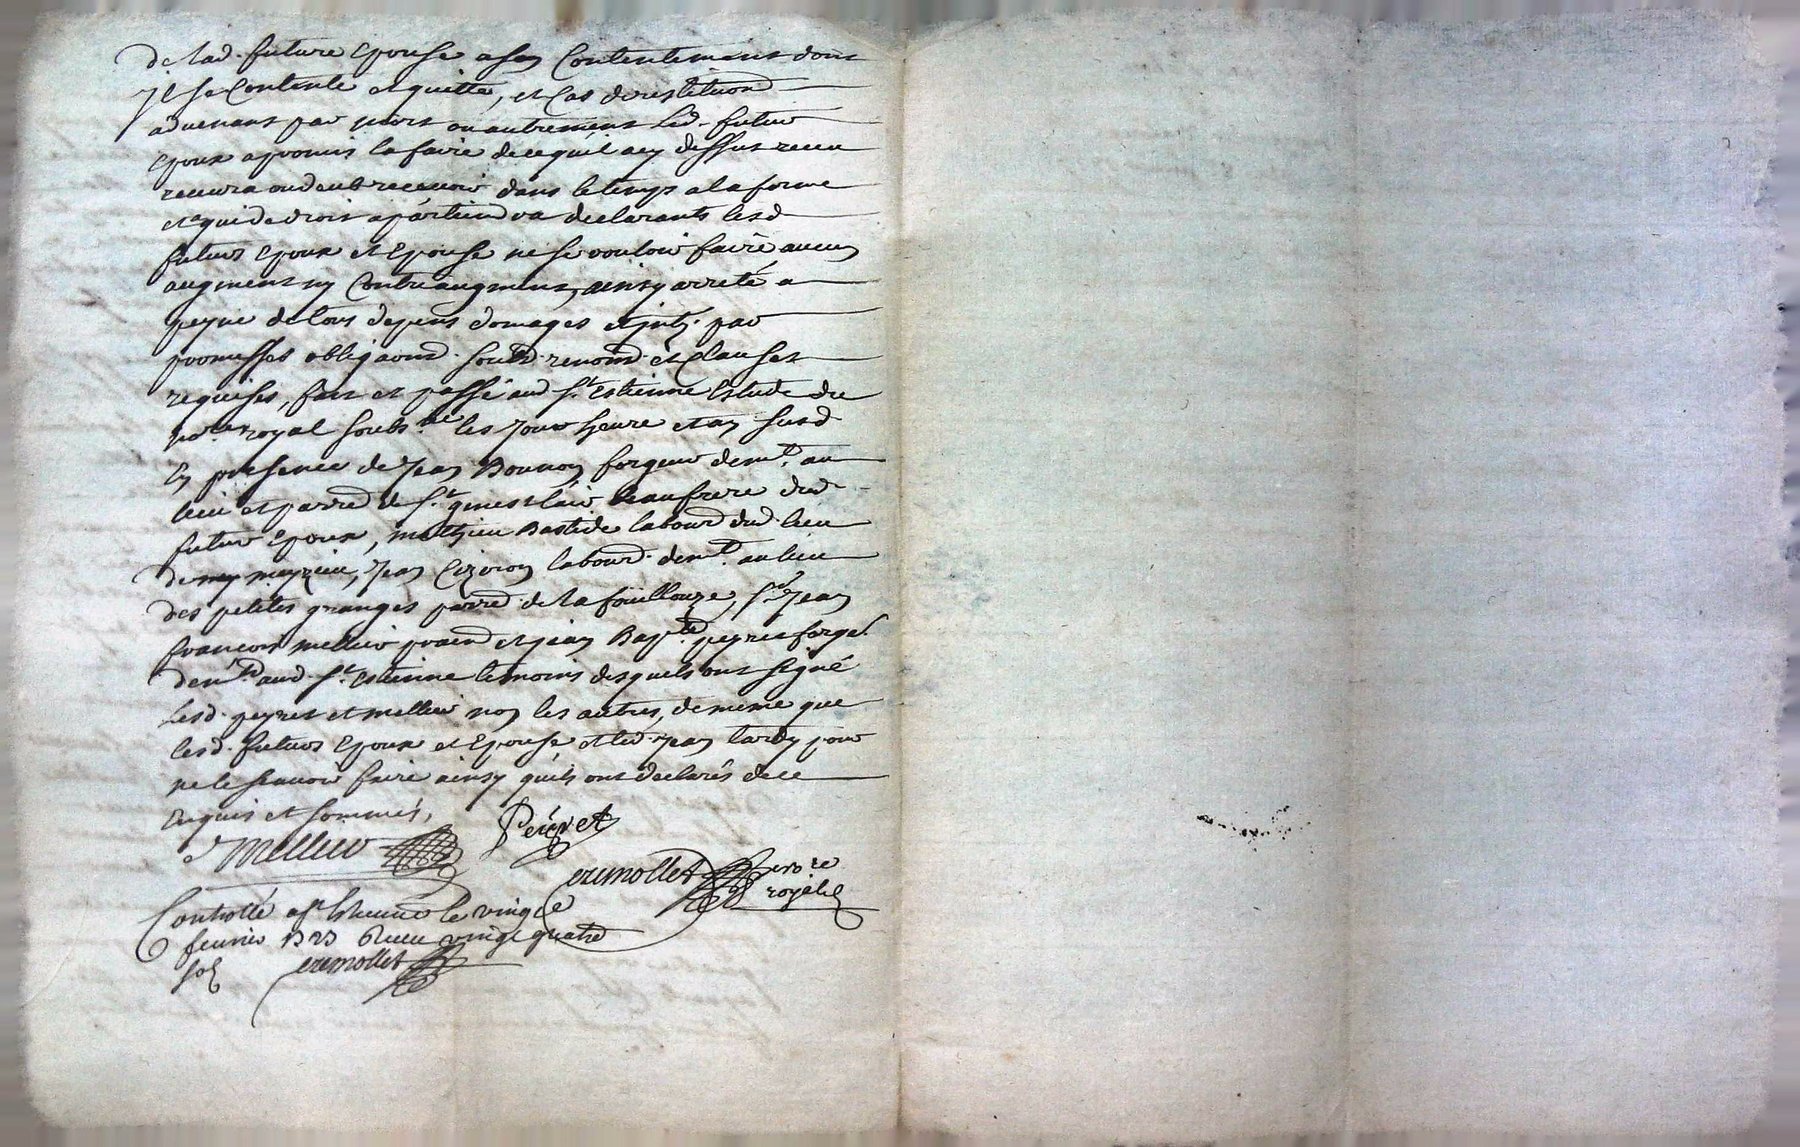 de lad. future Epouse a son Contentement dont
Il se Contente et quitte, et Cas de restitu͠on
advenant par mort ou autrement led. futur
Epoux a promis la faire de ce qu'il a cy dessus receu
recevra ou deub recevoir dans le temps a la forme
et a qui de droit apartiendra declarants lesd
futurs Epoux et Epouse ne se vouloir faire aucun
augment ny Contre augment, ainsy arreté a
peyne de tous depens domages et jnts. par
promesses obligaons. soubd. renond. et Clauses
requises, fait et passé aud St. Estienne Estude du
nore. royal soubs.né les jour heure et an susd
En presence de Jean Bonnon forgeur demt. au
lieu et parred de St. Beaufrere dud
futur Epoux, Mathieu Bastide labourd dud. lieu
de meyzieu, Jean labourd. demt. au lieu
des petites granges parred. de la foüillouze, Sr. Jean
francois mellier pratd et jean Bapte. peyret forger.
demt. aud. St. Estienne temoins desquels ont signé
lesd. peyret et mellier non les autres, de meme que
lesd. futurs Epoux et Epouse et led. Jean tardy pour
ne le scavoir faire ainsy qu'ils ont declarés de ce
Enquis et sommés,
Mellier Peyret
cremollet nore
royal
Controllé a St Estienne le vingt
fevrier 1723 Receu vingt quatre
sol cremollet